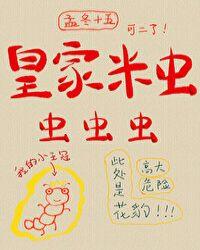 孟冬十五
可二了!
皇家米虫
虫虫虫
我的小王冠
此处是花豹!!!
高大危险